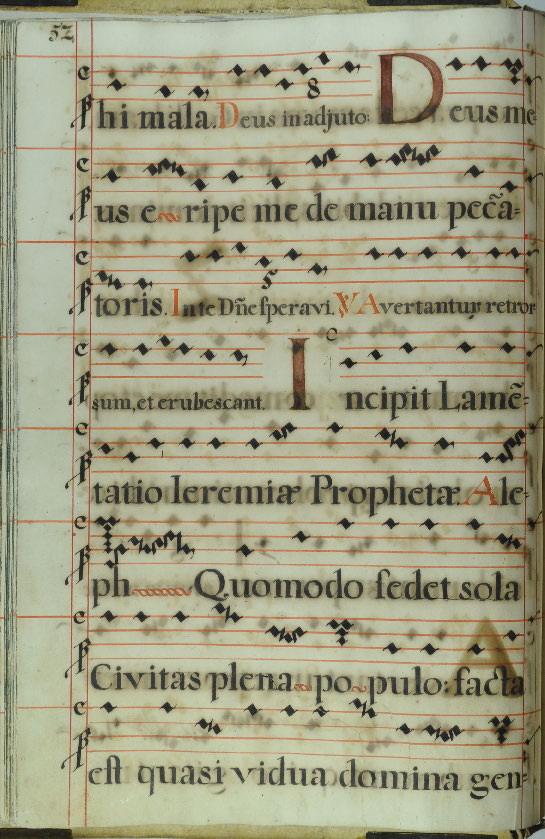 52
8
hi mala. Deus in adjuto: Deus me
us eripe me de manu pecc̃a=
5
toris. In te Dñe speravi. ℣ Avertantur retror
sum, et erubescant. Incipit Lamẽ=
tatio Ieremiæ Prophetæ. Ale=
ph Quomodo sedet sola
Civitas plena populo: facta
est quasi vidua domina gen=